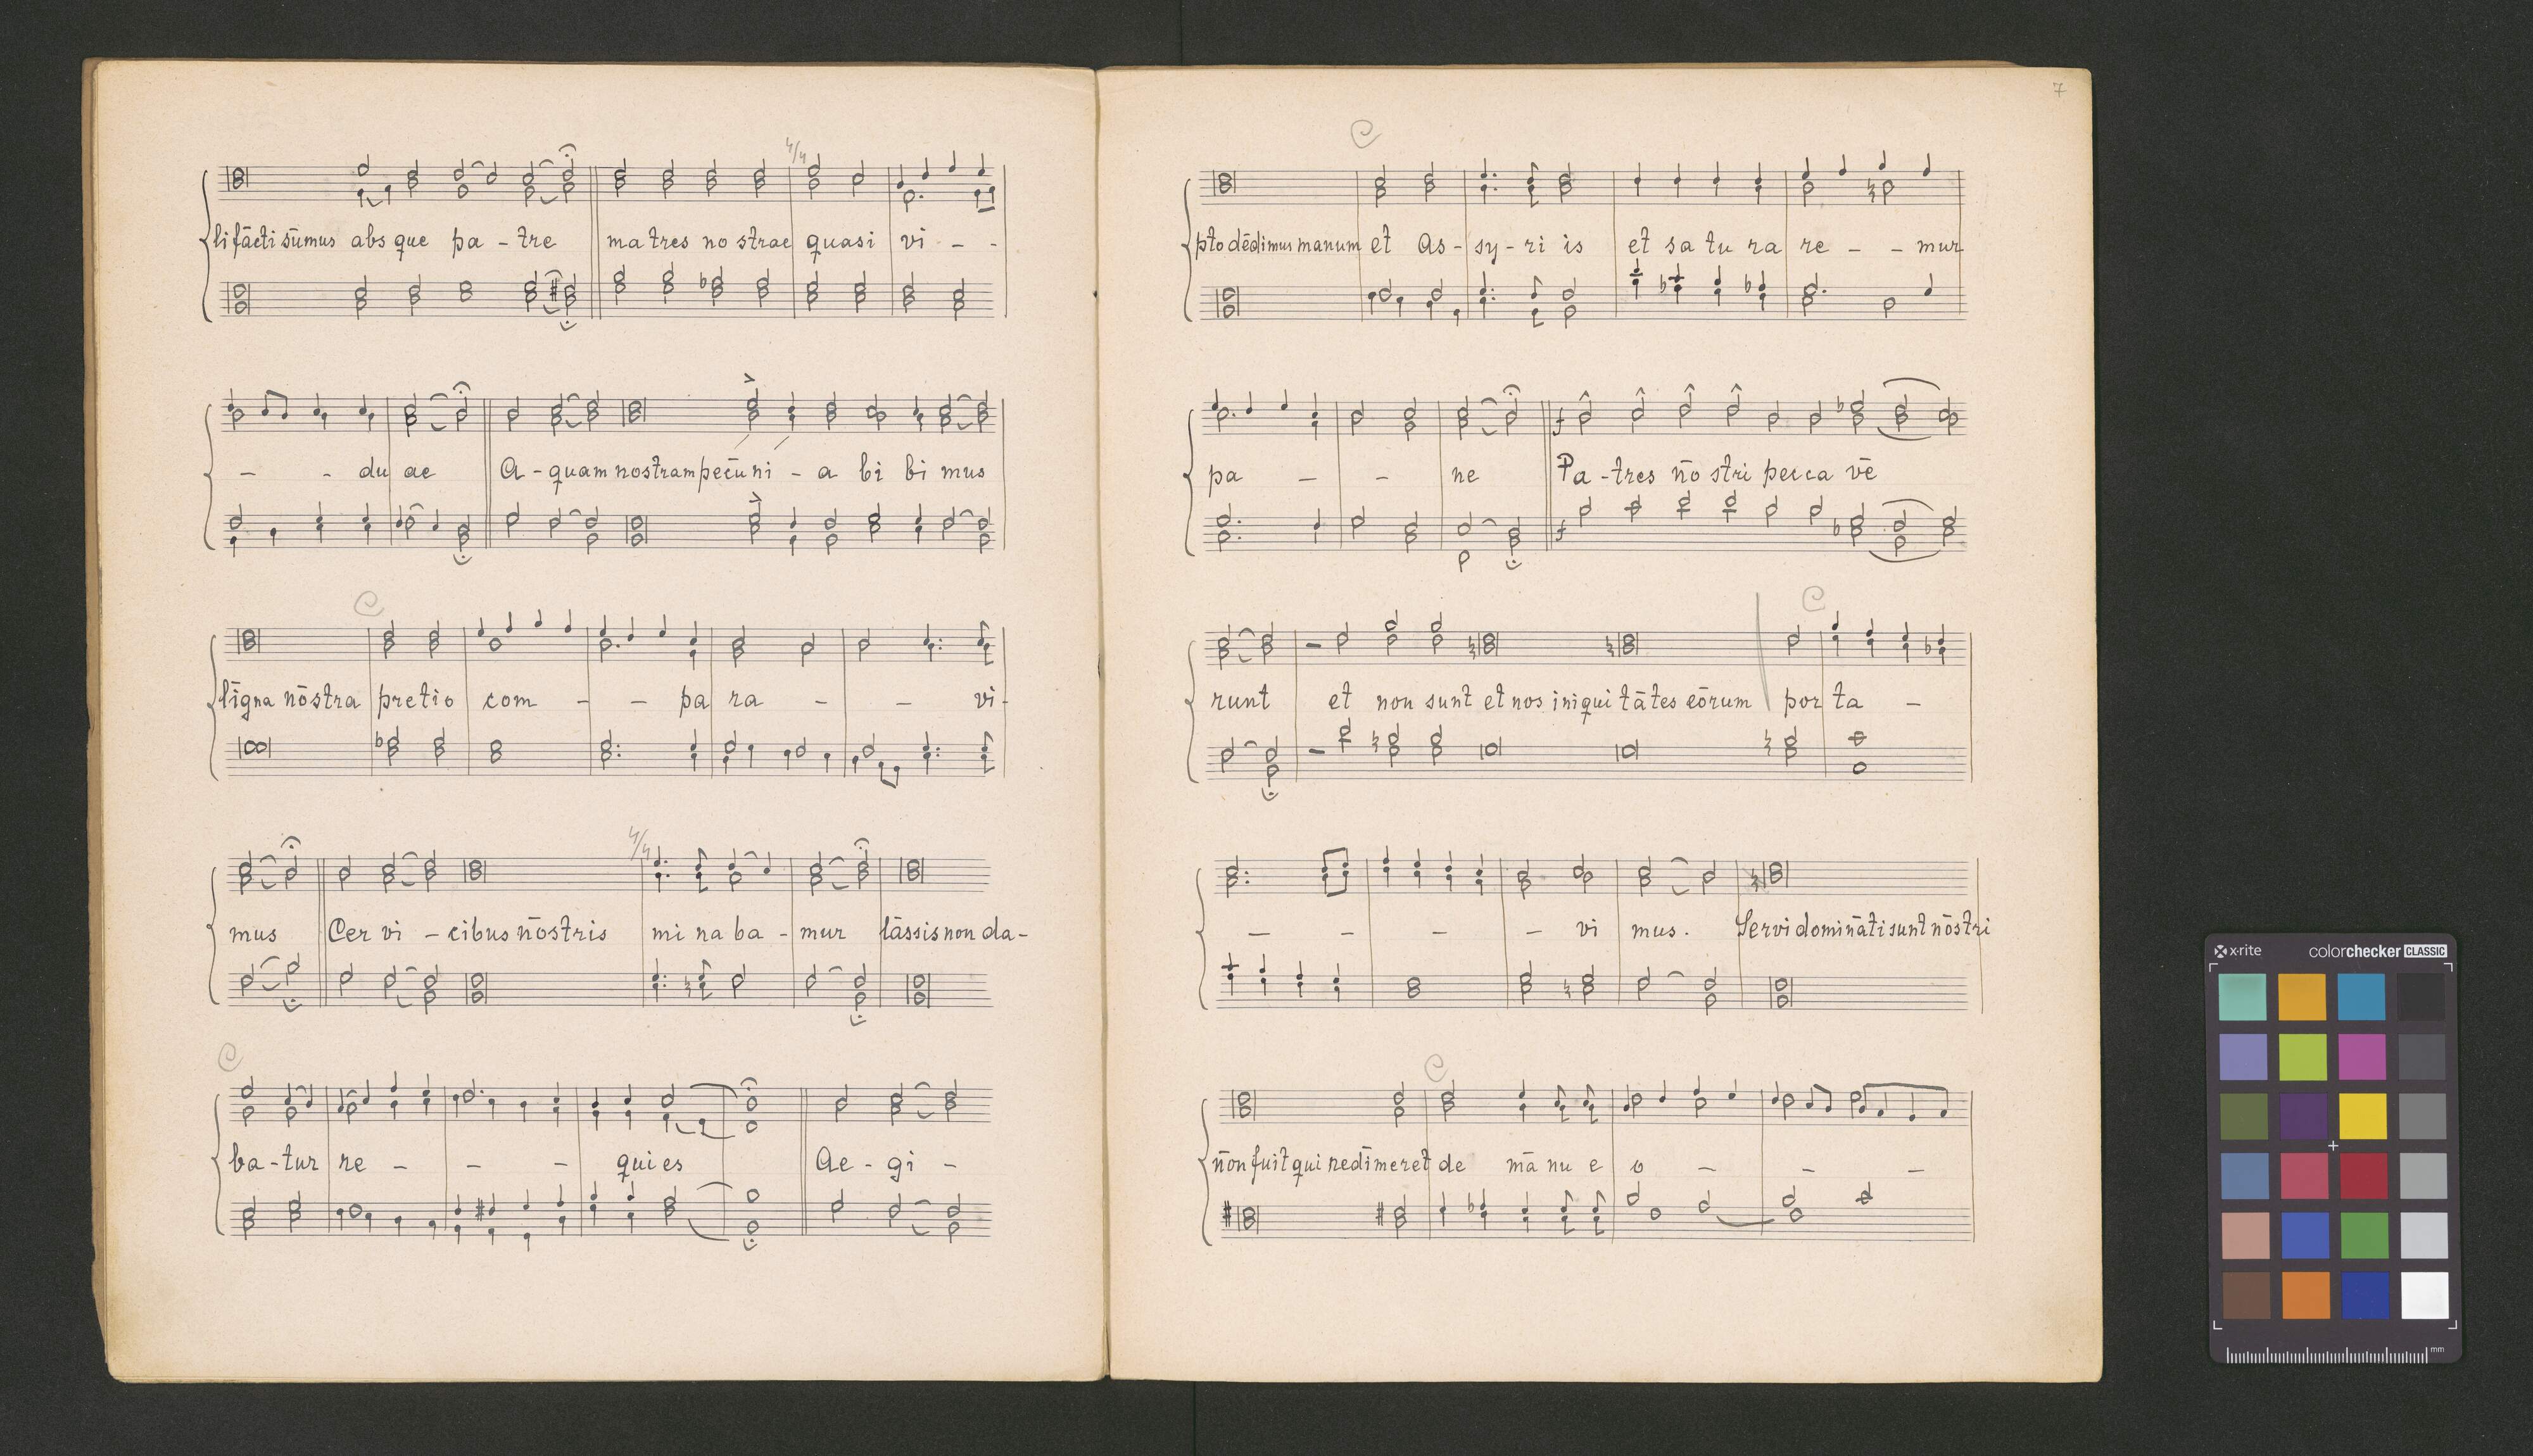 4/4
li fācti sūmus abs que pa - tre ma tres no strae quasi vi - -
- - du ae A - quam nostram pecū ni - a bi bi mus
C
līgna nōstra pretio com - - pa ra - - vi -
4/4
mus Cer vi - cibus nōstris mi na ba - mur lāssis non da -
C
ba - tur re - - - qui es Ae - gi -
7
C
pto dēdimus manum et As - sy - ri is et sa tu ra re - - mur
pa - - ne f Pa - tres nō stri pecca vē
f
C
runt et non sunt et nos iniqui tātes eōrum por ta -
- - - - vi mus. Servi domināti sunt nōstri
C
nōn fuit qui redīmeret de mā nu e o - - -
x-rite colorchecker CLASSIC
mm